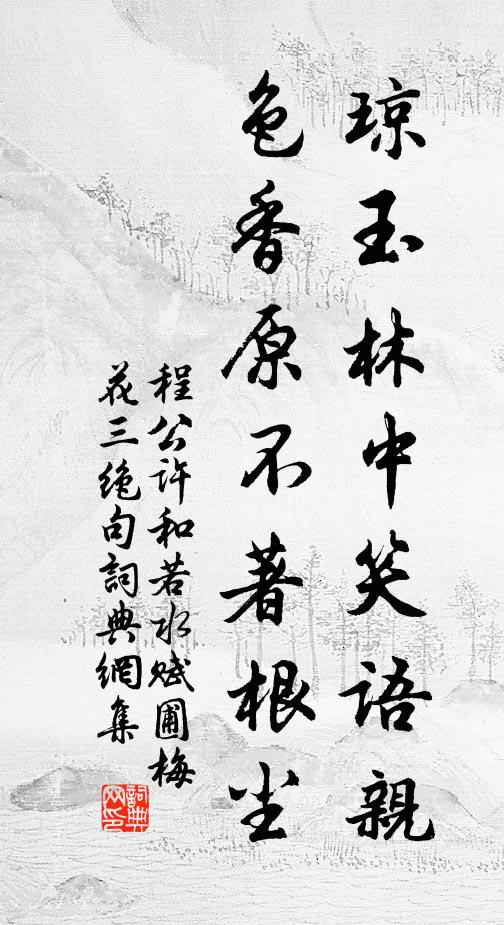 琼玉林中笑语親
色香原不著根尘
程公许和若水赋圃梅
花三绝句詞典網集
詞典
网印